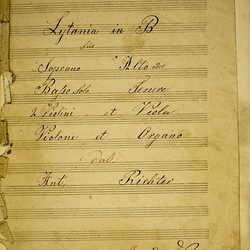 Lytania in B
für
Soprano Alto
Basso Solo Tenore
2 Violini et Viola
Violone et Organo
Dal
Ant. Richter